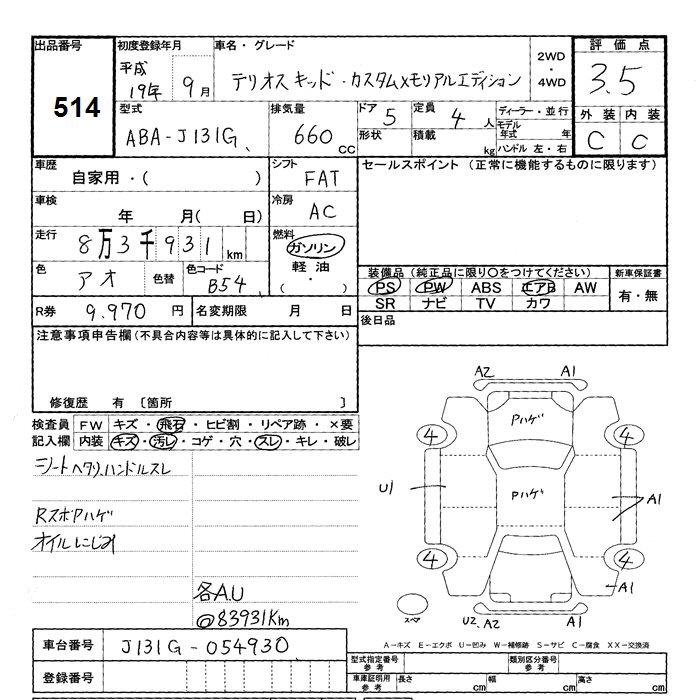 出品番号
514
初度登録年月
平成
19年 9月
車名・グレード
テリオスキッド・カスタムメモリアルエディション
2WD
・
4WD
評価点
3.5
外装 内装
C C
型式
ABA-J131G
排気量
660 CC
ドア 5
形状
定員 4 人
積載 kg
ディーラー・並行
モデル
年式 年
ハンドル 左・右
車歴
自家用・( )
シフト
FAT
セールスポイント (正常に機能するものに限ります)
車検
年 月( 日)
冷房
AC
走行
8万3千931km
燃料
ガソリン
軽油
( ・ )
色
アオ
色替
色コード
B54
装備品(純正品に限り○をつけてください)
PS PW ABS エアB AW
SR ナビ TV カワ
新車保証書
有・無
R券 9.970 円
名変期限 月 日
後日品
注意事項申告欄(不具合内容等は具体的に記入して下さい)
修復歴 有 〔箇所 〕
検査員
記入欄
FW キズ・飛石・ヒビ割・リペア跡・×要
内装 キズ・汚レ・コゲ・穴・スレ・キレ・破レ
シートヘタリ.ハンドルスレ
RスポPハゲ
オイルにじみ
各A.U
@83931Km
A2 A1
Pハゲ
4 4
Pハゲ
U1
A1
4 4
A1
スペア
U2.A2 A1
A-キズ E-エクボ U-凹み W-補修跡 S-サビ C-腐食 XX-交換済
車台番号 J131G-054930
登録番号
型式指定番号
参考
類別区分番号
参考
車庫証明用
参考
長さ cm 幅 cm 高さ cm